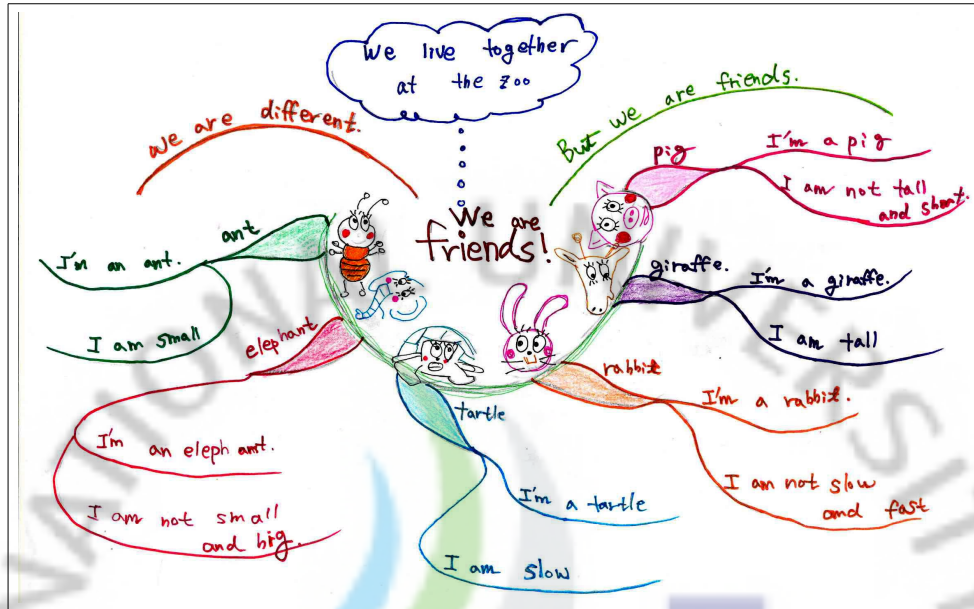 We live together
at the zoo
We are different.
But we are friends.
We are
friends!
ant
I'm an ant.
I am small
elephant
I'm an elephant.
I am not small
and big.
tartle
I'm a tartle
I am slow
rabbit
I'm a rabbit.
I am not slow
and fast
giraffe.
I'm a giraffe.
I am tall
pig
I'm a pig
I am not tall
and short.